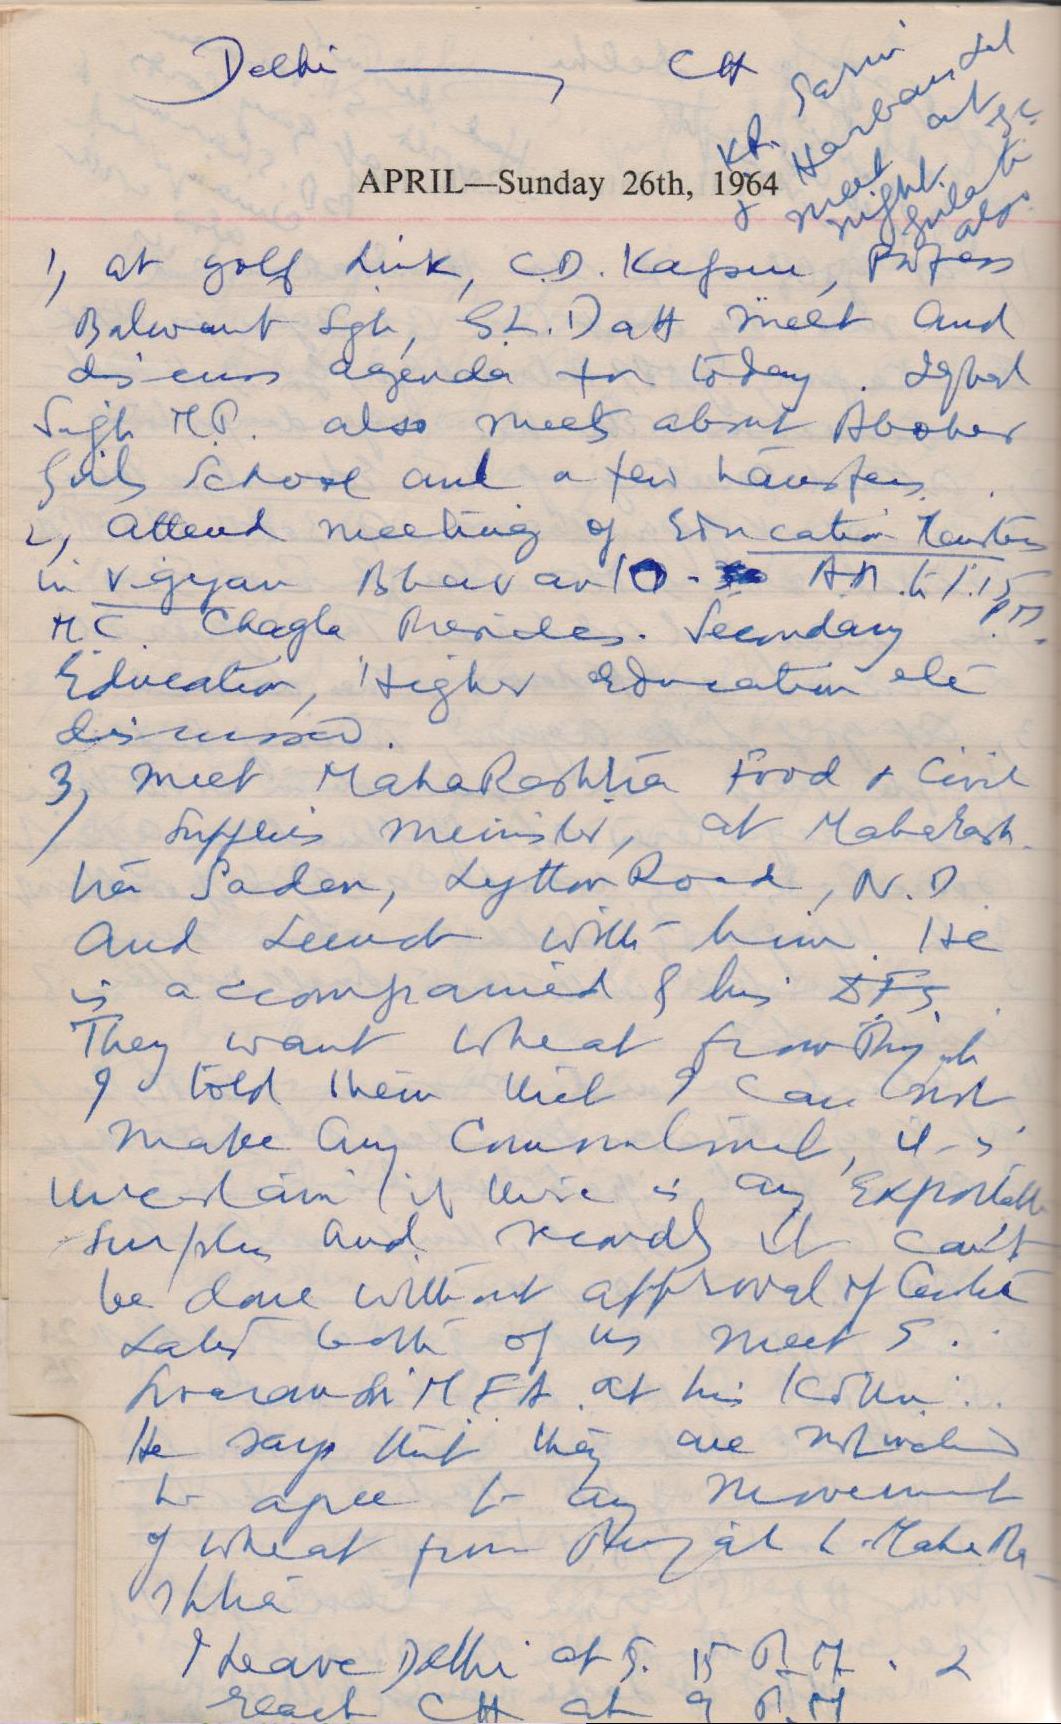 Delhi → CH
Harbans Lal
meet at
night.
Gulati
also
APRIL—Sunday 26th, 1964
1, at golf Link, C.D. Kapoor, Profess
Balwant Sgh, G.L. Datt meet and
discuss agenda for today. Iqbal
Singh M.P. also meets about Abohar
Girls School and a few transfers.
2, Attend meeting of Education Ministers
in Vigyan Bhavan 10 - A.M. to 1.15
P.M.
M.C. Chagla Presides. Secondary
Education, Higher Education etc
discussed.
3, meet MahaRashtra Food & Civil
Supplies minister, at Maharash
tra Sadan, Lytton Road, N.D.
and Lunch with him. He
is accompanied by his DFS.
They want wheat from Punjab
I told them that I can not
make any Commitment, it is
uncertain if there is any Exportable
surplus and secondly it can't
be done without approval of Centre
Later both of us meet S.
Swaran Si M F A at his Kothi.
He says that they are not inclined
to agree to any movement
of wheat from Punjab to MahaRa
shtra
I Leave Delhi at 5. 15 P.M. &
reach CH at 9 P.M